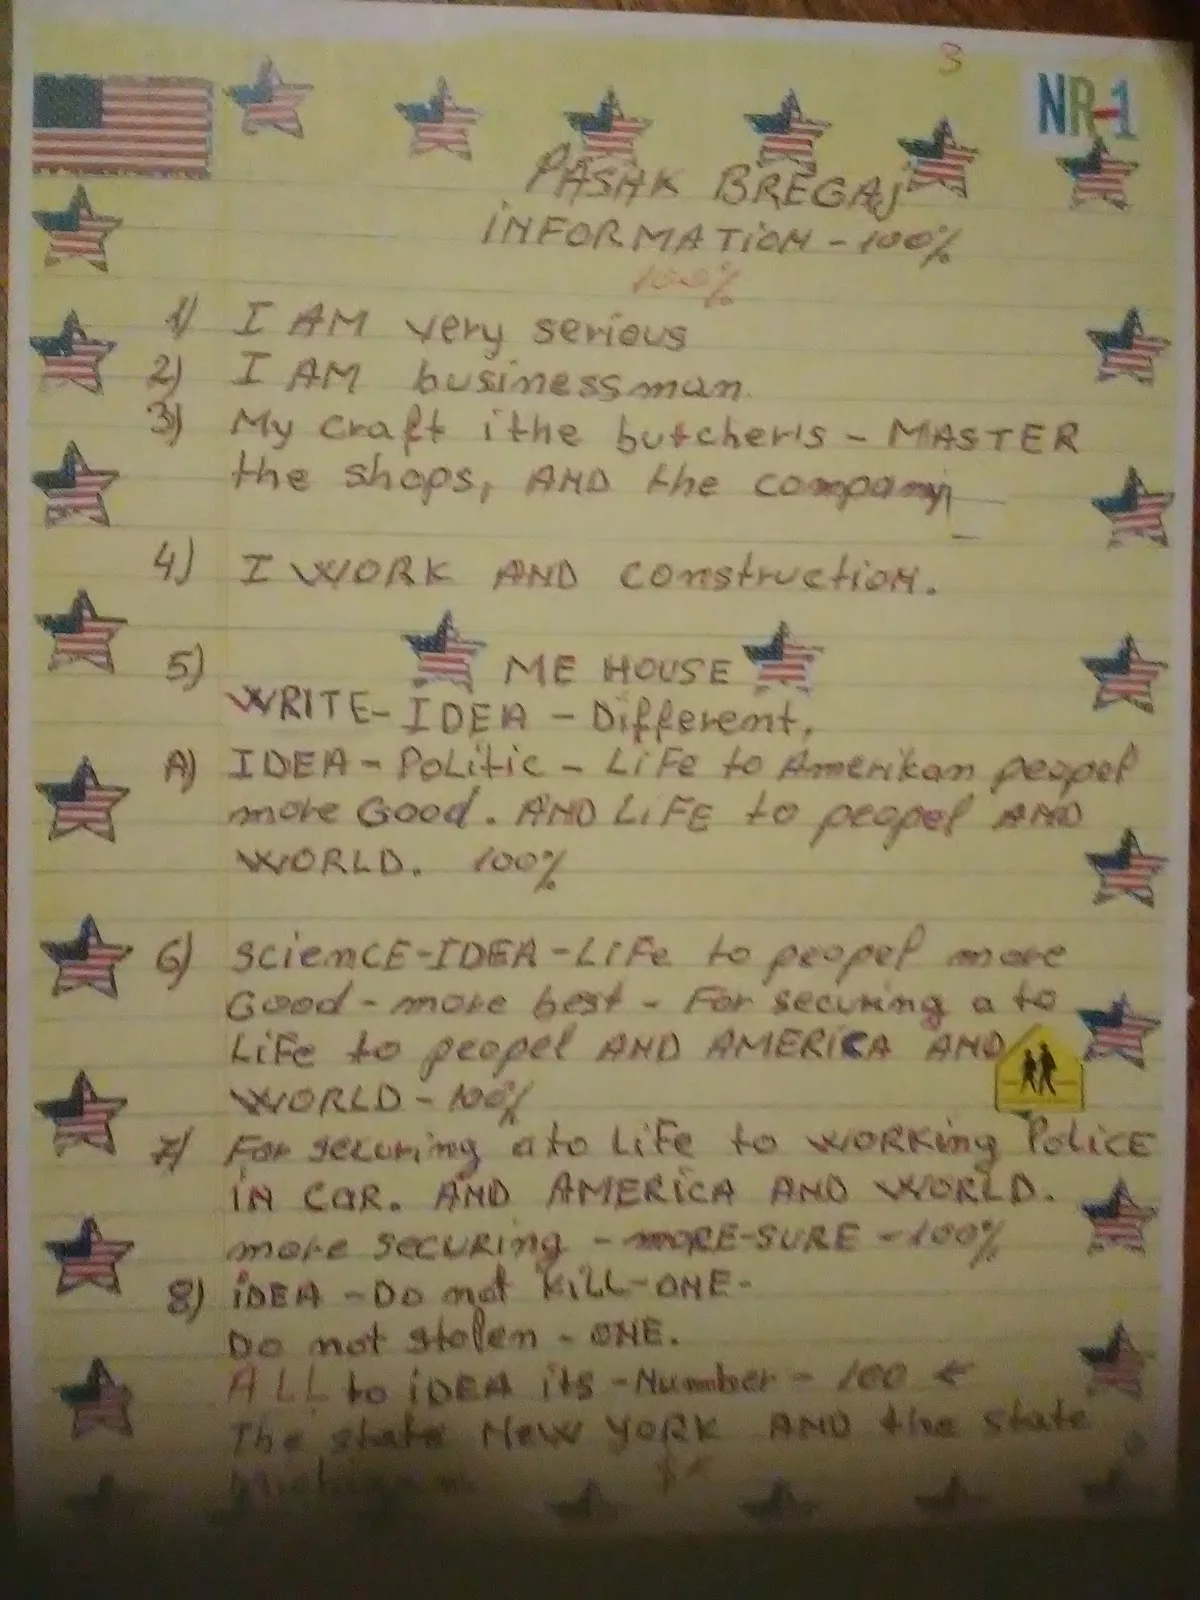 3
NR-1
PASHK BREGAJ
INFORMATION - 100%
100%
1) I AM very serious
2) I AM businessman.
3) My craft ithe butcher's - MASTER
the shops, AND the company
4) I WORK AND construction.
5) ME HOUSE
WRITE- IDEA - Different.
A) IDEA - Politic - LiFe to Amerikan peopel
more Good. AND LiFE to peopel AND
WORLD. 100%
6) science-IDEA-LiFe to peopel more
Good - more best - For securing a to
LiFe to peopel AND AMERICA AND
WORLD - 100%
7) For securing a to LiFe to WORKing POLICE
IN CAR. AND AMERICA AND WORLD.
more SECURING - MORE-SURE - 100%
8) iDEA - DO not KILL-ONE-
Do not stolen - ONE.
ALL to iDEA its - Number - 100 ←
The state NEW YORK AND the state
Michigan